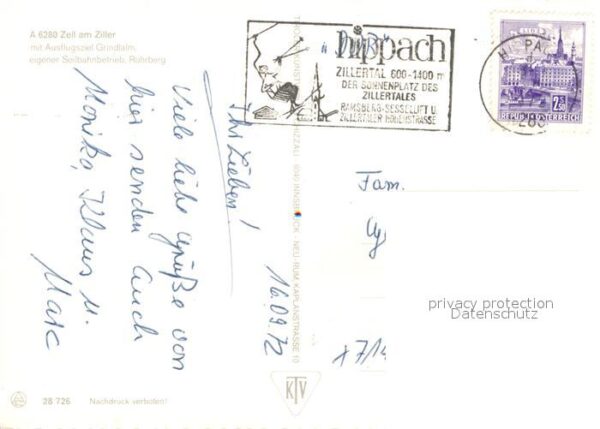 A 6280 Zell am Ziller
mit Ausflugsziel Grindlalm,
eigener Seilbahnbetrieb, Rohrberg
Ihr Lieben!
Viele liebe Grüße von
hier senden Euch
Monika, Klaus u.
Marc
16.09.72
hippach
ZILLERTAL 600-1400 m
DER SONNENPLATZ DES
ZILLERTALES
RAMSBERG-SESSELLIFT U.
ZILLERTALER HÖHENSTRASSE
REPUBLIK ÖSTERREICH
Fam.
INNSBRUCK - NEU-RUM KAPLANSTRASSE 10
KTV
28 726 Nachdruck verboten!
privacy protection
Datenschutz